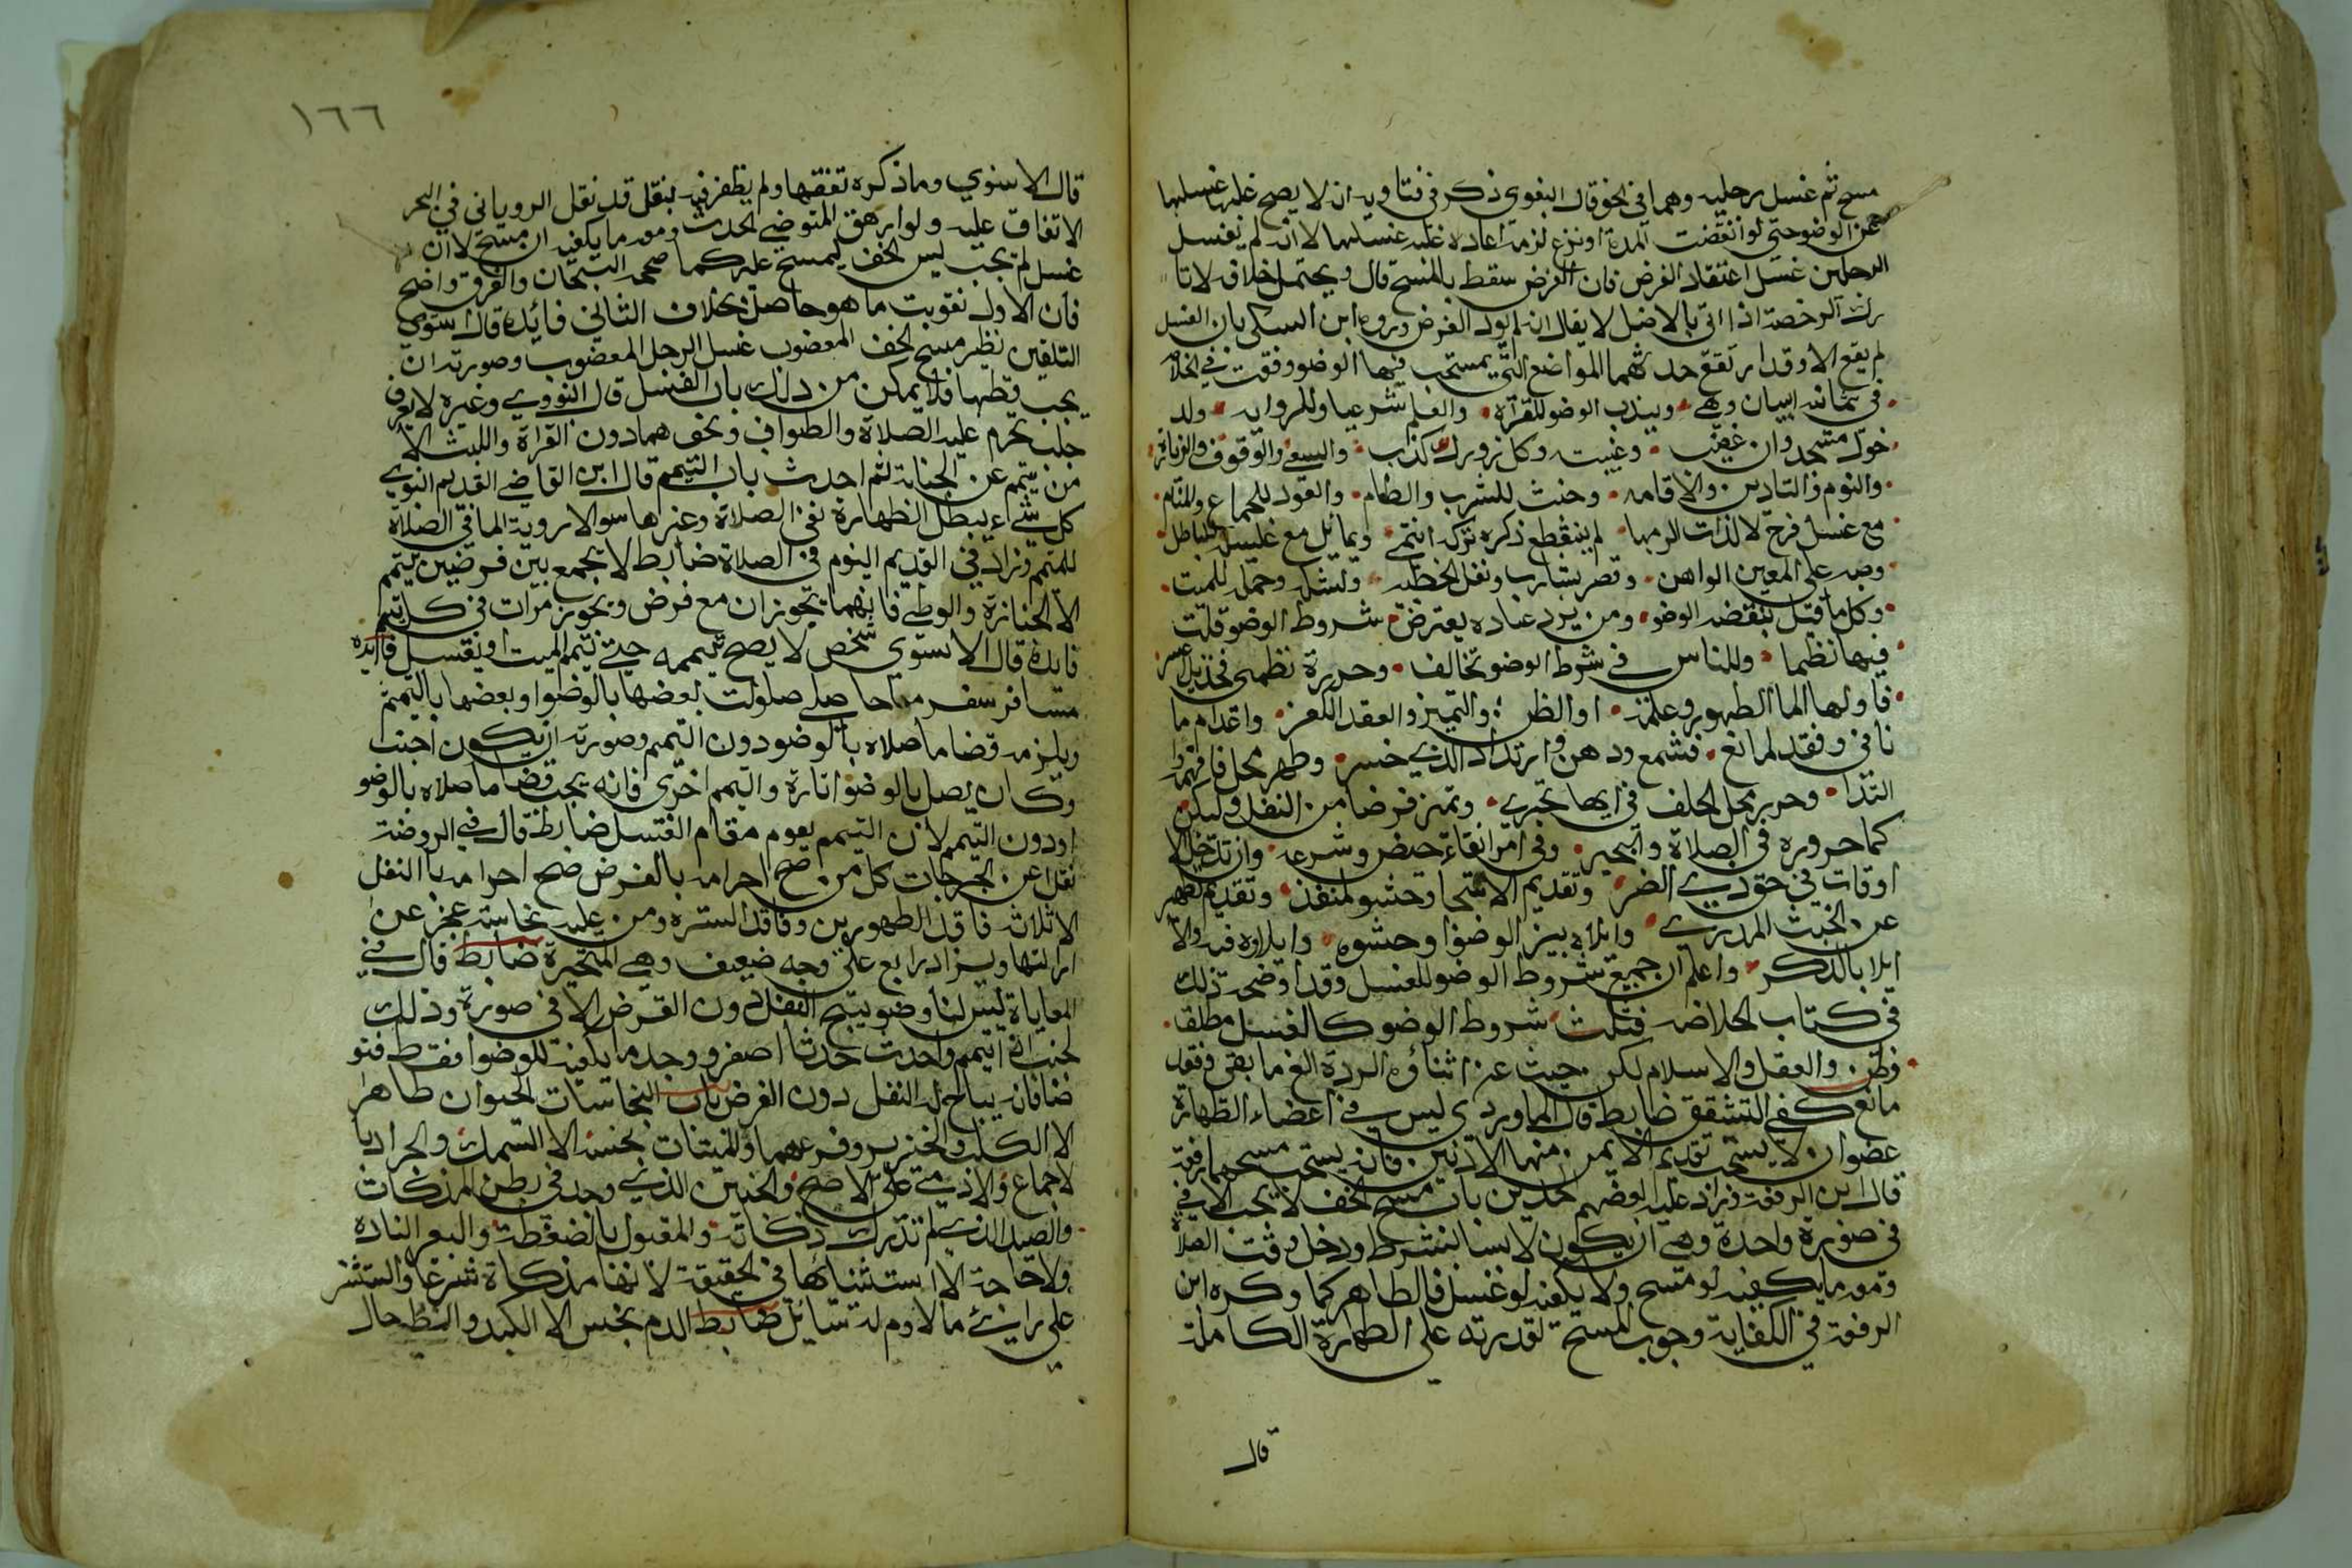 مسح ثم غسل رجليه وهما في الخف قال البغوي ذكر في فتاويه انه لا يصح غلها غسلها
عن الوضو حتى لو انقضت المدة او نزع لزمه اعادة غسلهما لانه لم يغسل
الرجلين غسل اعتقاد الفرض فان الفرض سقط بالمسح قال ويحتمل خلافه لا تا
رك الرخصة اذا اتى بالاصل لا يقال انه لم يود الفرض ورده ابن السبكي بان الغسل
لم يقع الا وقد ارتفع حدثهما المواضع التي يستحب فيها الوضو وقعت في
في ثمانية ابيات وهي ويندب الوضو للقراة والعلم شرعيا وللرواية ولد
خول مسجد وان غضب وغيبت وكل زور كذب والسعي والوقوف والزيارة
والنوم والتادين والاقامه وحنث للشرب والطعام والعود للجماع وللمنام
مع غسل فرج لا لذات الرمها لم ينقطع ذكره تركه انتمى
وبه على المعين الواهن وقص شارب ونفل الخطبه وحمله للميت
وكل ما قيل بنقضه الوضو ومن يرد عباده يعترض شروط الوضو قلت
فيها نظما وللناس في شرط الوضو تخالف وحررة نظمي فخذ
فاولها الما الطهور وعلمه او الظن والتميز والعقد وافدام ما
نافي وفقد لمانع فشمع ودهن وارتداد الذي خسر وطهر محل فافهم
التدا وحرير محل الخلف في ايها تجري وتمز فرضا من النفل وليكن
كما حرروه في الصلاة وفي امر انقاء حيض وشرعه وان تدخل
اوقات في حق ذي الضر وتقديم الاستنجا وحشو لمنفذ وتقديم
عن الخبث وايلاه بين الوضوا وحشوه وايلاوه فيه والا
ايلا بالذكر واعلم ان جميع شروط الوضو للغسل وقد اوضحت ذلك
في كتاب الخلاصه فقلت شروط الوضو كالغسل مطلقا
وظن والعقل والاسلام لكن حيث عن اثناؤه الردة الغ ما بقى وفقد
مانع كفي التشقق ضابط قال الماوردي ليس في اعضاء الطهارة
عضوان لا يستحب تقديم الايمن منهما الا الاذنين فانه يستحب مسحهما دفعة
قال ابن الرفعة وزاد عليه بعضهم الخدين باب مسح الخف لا يجب الا في
في صورة واحدة وهي ان يكون لابسا بشرط ودخل وقت الصلاة
ومعه ما يكفيه لو مسح ولا يكفيه لو غسل فالظاهر كما ذكره ابن
الرفعة في الكفاية وجوب المسح لقدرته على الطهارة الكاملة
قال
١٦٦
قال الاسنوي وما ذكره تفقها ولم يظفر فيه بنقل قد نقل الروياني في البحر
الاتفاق عليه ولو ارهق المتوضي الحدث ومعه ما يكفيه ان مسح لا ان
غسل لم يجب لبس الخف ليمسح عليه كما صححه الشيخان والفرق واضح
فان الاول تفويت ما هو حاصل بخلاف الثاني فائدة قال اسنوي
التلقين نظير مسح الخف المغصوب غسل الرجل المغصوب وصورته ان
يجب قطعها فلا يمكن من ذلك باب الغسل قال النووي وغيره لا يعرف
جنب يحرم عليه الصلاة والطواف ونحوهما دون القراة واللبث الا
من تيمم عن الجنابة ثم احدث باب التيمم قال ابن القاضي القديم النووي
كل شئ يبطل الطهارة ففي الصلاة وغيرها سوا الا روية الما في الصلاة
للمتيمم وزاد في القديم النوم في الصلاة ضابط لا يجمع بين فرضين بتيمم
الا الجنازة والوطي فانهما يجوزان مع فرض ويجوز مرات في كل تيمم
فايدة قال الاسنوي شخص لا يصح تيممه حتى تيمم الميت او يغتسل فائدة
مسافر سفر مباحا صلى صلوات بعضها بالوضوا وبعضها بالتيمم
ويلزمه قضا ما صلاه بالوضو دون التيمم وصورته ان يكون اجنب
وكان يصلي بالوضوا تارة والتيمم اخرى فانه يجب قضا ما صلاه بالوضو
اودون التيمم لان التيمم يقوم مقام الغسل ضابط قال في الروضة
نقلا عن الجرجاني كل من صح احرامه بالفرض صح احرامه بالنفل
الا ثلاثه فاقد الطهورين وفاقد السترة ومن عليه نجاسة عجز عن
ازالتها ويزاد رابع على وجه ضعيف وهي المتحيرة ضابط قال في
المعاياة ليس لنا وضو يبيح النفل دون الفرض الا في صورة وذلك
لجنب اذا تيمم واحدث حدثا اصغر ووجد ما يكفيه للوضوا فقط فتو
ضا فانه يباح له النفل دون الفرض باب النجاسات الحيوان طاهر
الا الكلب والخنزير وفرعهما والميتات نجسة الا السمك والجراد با
لاجماع والادمي على الاصح والجنين الذي وجد في بطن المذكات
والصيد الذي لم تدرك ذكاته والمقتول بالضغطة والبعير الناده
ولا حاجة الا استثنائها في الحقيقة لانها مذكاة شرعا واستثنى
على راى ما لا دم له سائل ضابط الدم نجس الا الكبد والطحال